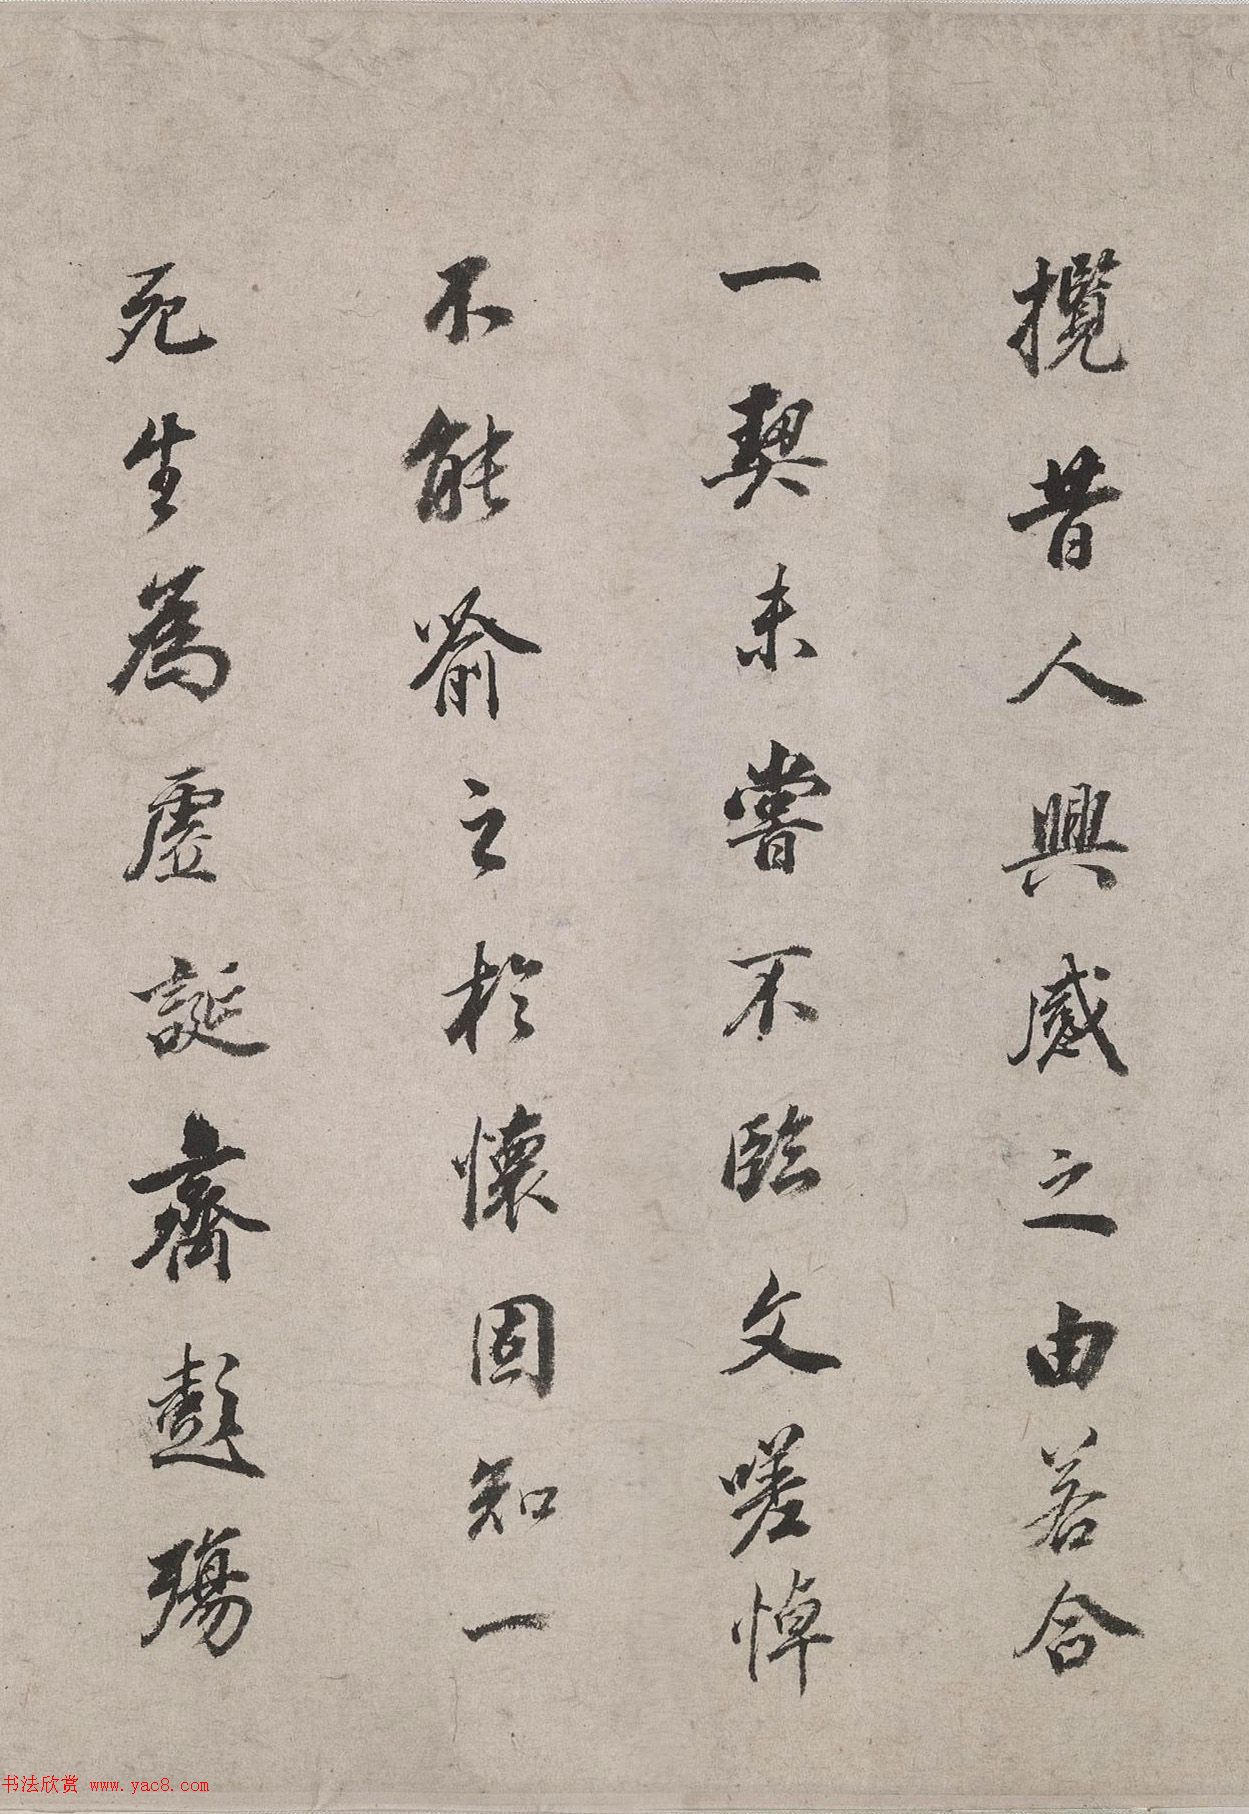 攬昔人興感之由若合
一契未嘗不臨文嗟悼
不能喻之於懷固知一
死生為虛誕齊彭殤
书法欣赏 www.yac8.com